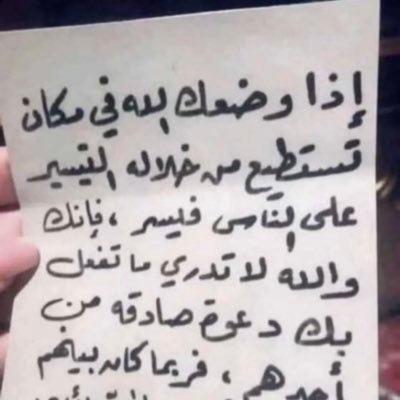 إذا وضعك الله في مكان
تستطيع من خلاله التيسير
على الناس فيسر ، فإنك
والله لا تدري ما تفعل
بك دعوة صادقه من
أحدهم ، فربما كان بينهم